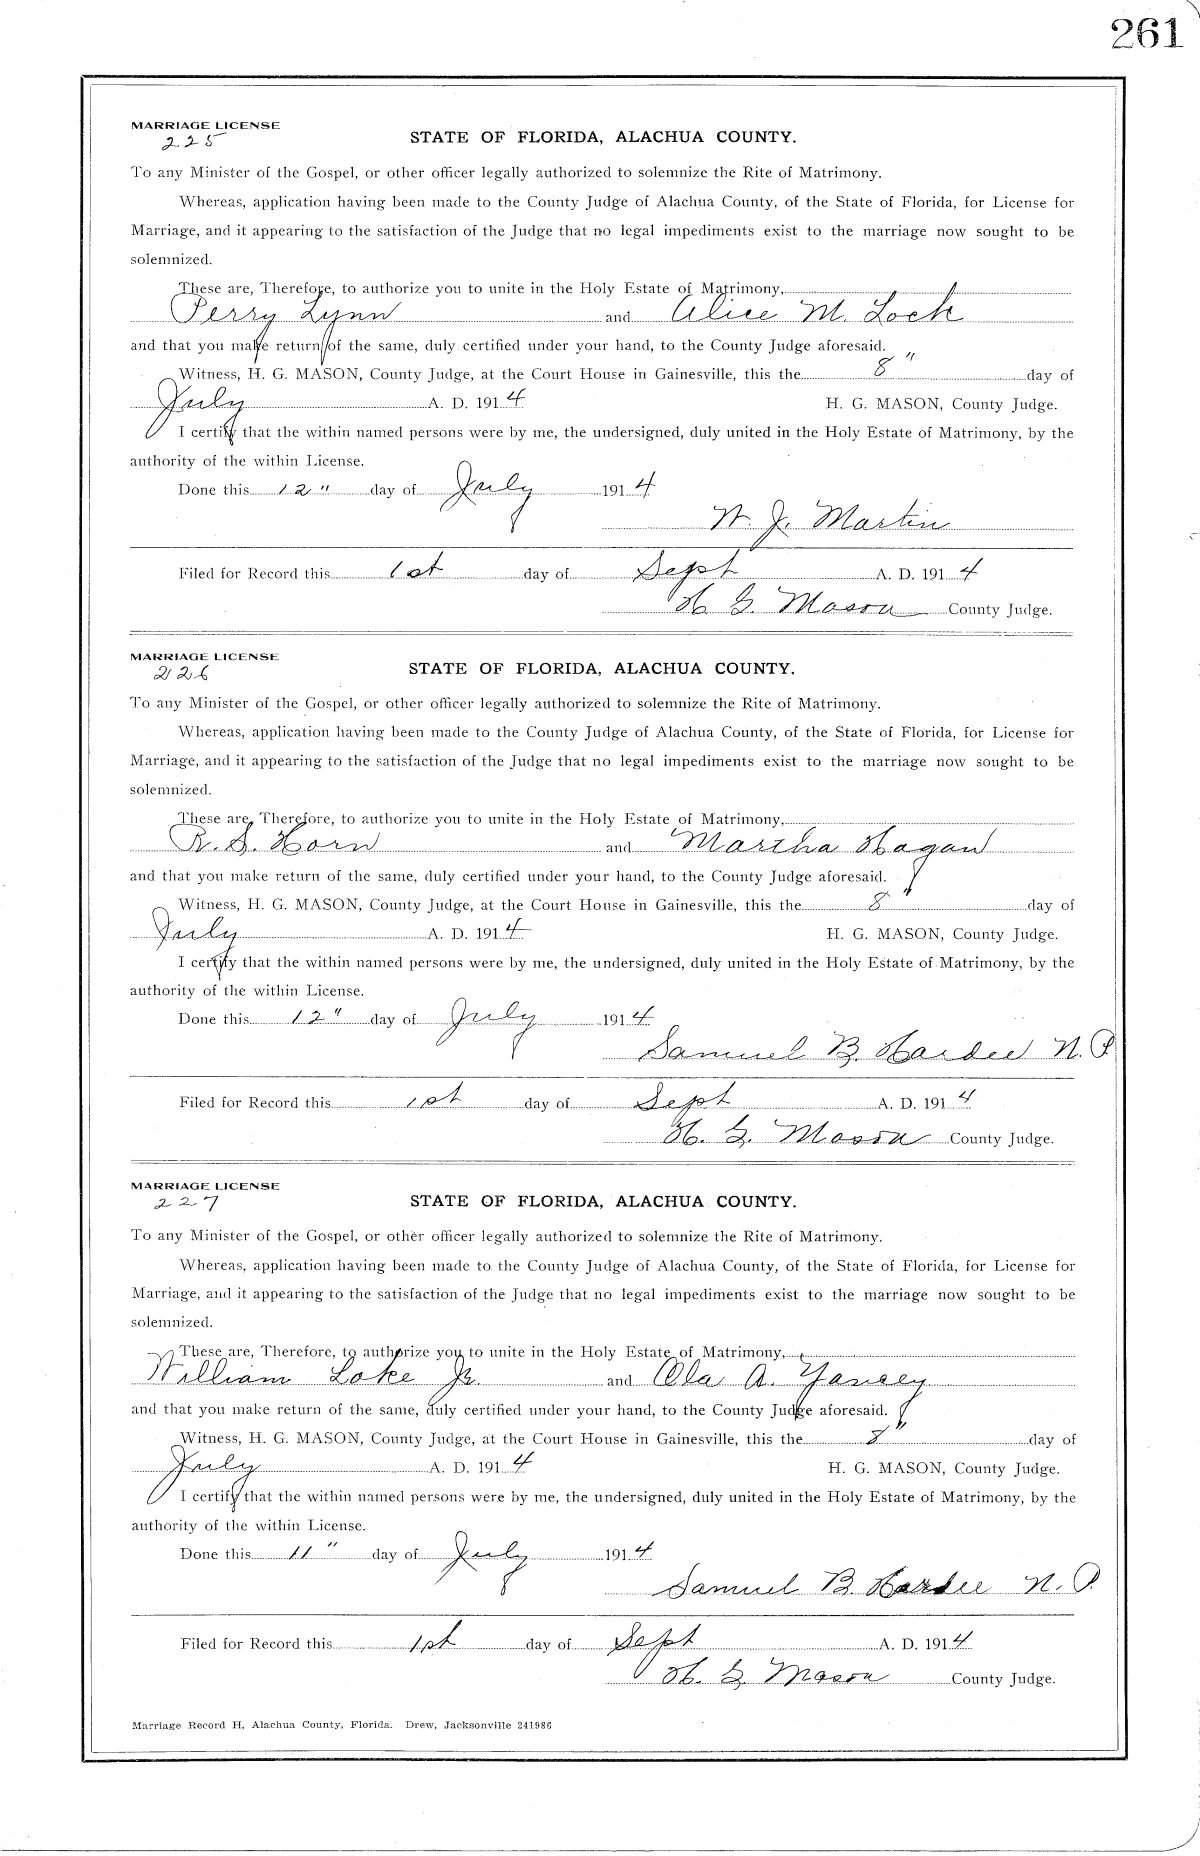 261
MARRIAGE LICENSE
225
STATE OF FLORIDA, ALACHUA COUNTY.
To any Minister of the Gospel, or other officer legally authorized to solemnize the Rite of Matrimony.
Whereas, application having been made to the County Judge of Alachua County, of the State of Florida, for License for
Marriage, and it appearing to the satisfaction of the Judge that no legal impediments exist to the marriage now sought to be
solemnized.
These are, Therefore, to authorize you to unite in the Holy Estate of Matrimony,
Perry Lynn and Alice M. Lock
and that you make return of the same, duly certified under your hand, to the County Judge aforesaid.
Witness, H. G. MASON, County Judge, at the Court House in Gainesville, this the 8" day of
July A. D. 1914 H. G. MASON, County Judge.
I certify that the within named persons were by me, the undersigned, duly united in the Holy Estate of Matrimony, by the
authority of the within License.
Done this 12" day of July 1914
W. J. Martin
Filed for Record this 1st day of Sept A. D. 1914
H G. Mason County Judge.
MARRIAGE LICENSE
226
STATE OF FLORIDA, ALACHUA COUNTY.
To any Minister of the Gospel, or other officer legally authorized to solemnize the Rite of Matrimony.
Whereas, application having been made to the County Judge of Alachua County, of the State of Florida, for License for
Marriage, and it appearing to the satisfaction of the Judge that no legal impediments exist to the marriage now sought to be
solemnized.
These are, Therefore, to authorize you to unite in the Holy Estate of Matrimony,
R. S. Horn and Martha Hagan
and that you make return of the same, duly certified under your hand, to the County Judge aforesaid.
Witness, H. G. MASON, County Judge, at the Court House in Gainesville, this the 8" day of
July A. D. 1914 H. G. MASON, County Judge.
I certify that the within named persons were by me, the undersigned, duly united in the Holy Estate of Matrimony, by the
authority of the within License.
Done this 12" day of July 1914
Samuel B. Hardee N. P
Filed for Record this 1st day of Sept A. D. 1914
H. G. Mason County Judge.
MARRIAGE LICENSE
227
STATE OF FLORIDA, ALACHUA COUNTY.
To any Minister of the Gospel, or other officer legally authorized to solemnize the Rite of Matrimony.
Whereas, application having been made to the County Judge of Alachua County, of the State of Florida, for License for
Marriage, and it appearing to the satisfaction of the Judge that no legal impediments exist to the marriage now sought to be
solemnized.
These are, Therefore, to authorize you to unite in the Holy Estate of Matrimony,
William Loke Jr. and Ola A. Yancey
and that you make return of the same, duly certified under your hand, to the County Judge aforesaid.
Witness, H. G. MASON, County Judge, at the Court House in Gainesville, this the 8" day of
July A. D. 1914 H. G. MASON, County Judge.
I certify that the within named persons were by me, the undersigned, duly united in the Holy Estate of Matrimony, by the
authority of the within License.
Done this 11" day of July 1914
Samuel B. Hardee N. P.
Filed for Record this 1st day of Sept A. D. 1914
H. G. Mason County Judge.
Marriage Record H, Alachua County, Florida. Drew, Jacksonville 241986